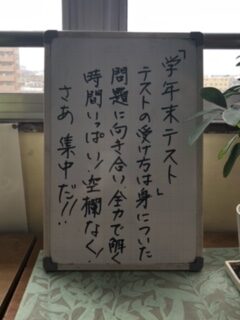 「学年末テスト」
テストの受け方は身についた
問題に向き合い、全力で解く
時間いっぱい!空欄なく!
さあ 集中だ!!